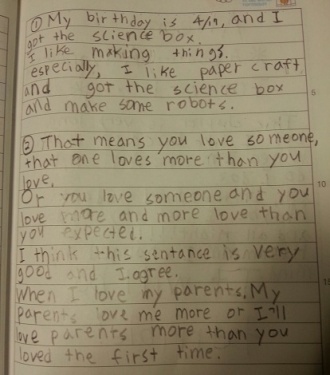 ① My birthday is 4/19, and I
got the science box.
I like making things.
especially, I like paper craft
and got the science box
and make some robots.
② That means you love someone,
that one loves more than you
love.
Or you love someone and you
love more and more love than
you expected.
I think this sentance is very
good and I agree.
When I love my parents, My
parents love me more or I'll
love parents more than you
loved the first time.
5
10
15